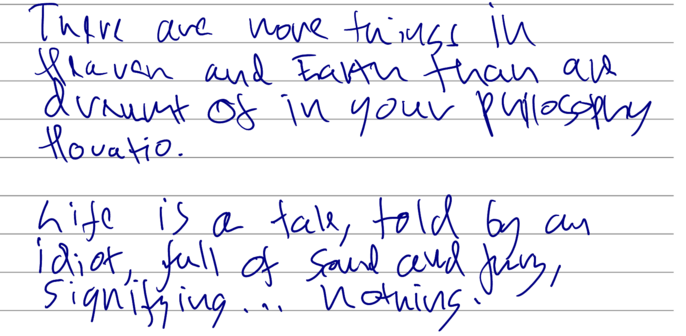 There are more things in
Heaven and Earth than are
dreamt of in your philosophy
Horatio.
Life is a tale, told by an
idiot, full of sound and fury,
signifying... nothing.